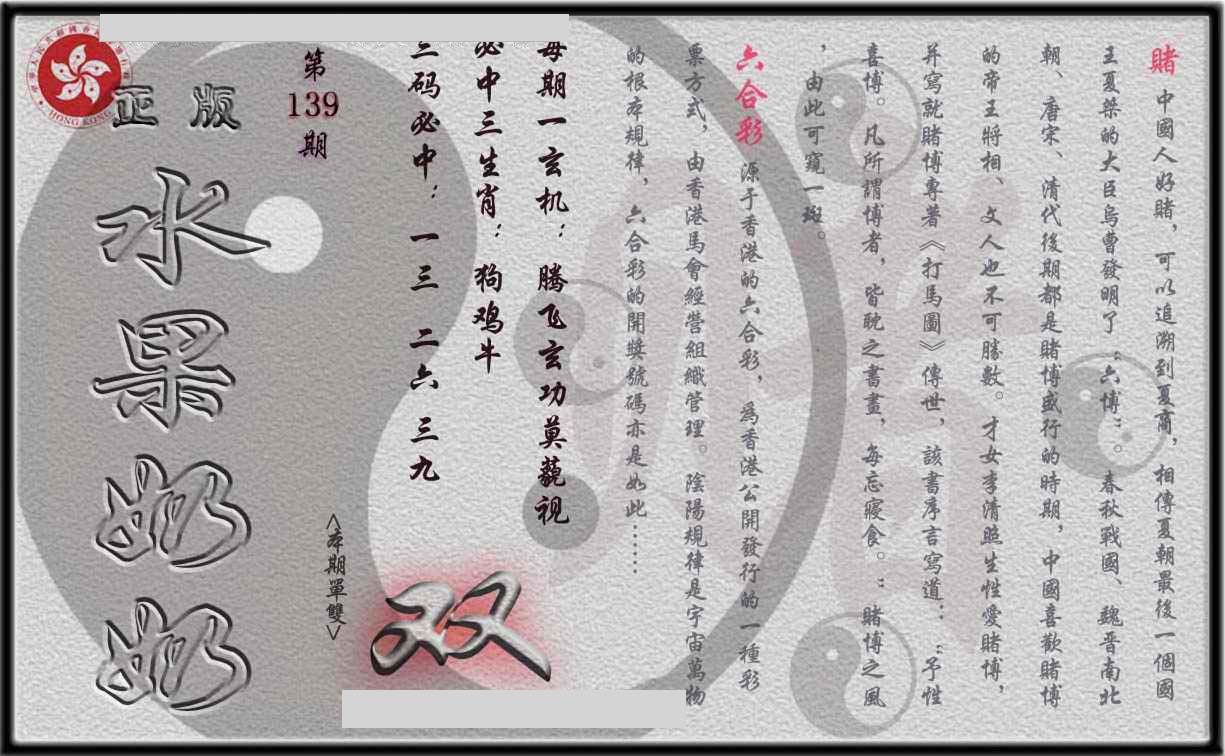 賭 中國人好賭，可以追溯到夏商，相傳夏朝最後一個國
王夏桀的大臣烏曹發明了“六博”。春秋戰國、魏晋南北
朝、唐宋、清代後期都是賭博盛行的時期，中國喜歡賭博
的帝王將相、文人也不可勝數。才女李清照生性愛賭博，
并寫就賭博專著《打馬圖》傳世，該書序言寫道：“予性
喜博。凡所謂博者，皆耽之書畫，每忘寢食。”賭博之風
，由此可窺一斑。
六合彩 源于香港的六合彩，為香港公開發行的一種彩
票方式，由香港馬會經營組織管理。陰陽規律是宇宙萬物
的根本規律，六合彩的開獎號碼亦是如此……
每期一玄机：腾飞玄功莫藐视
必中三生肖：狗鸡牛
三码必中：一三 二六 三九
双
<本期單雙>
第
139
期
正版
水果奶奶
HONG KONG